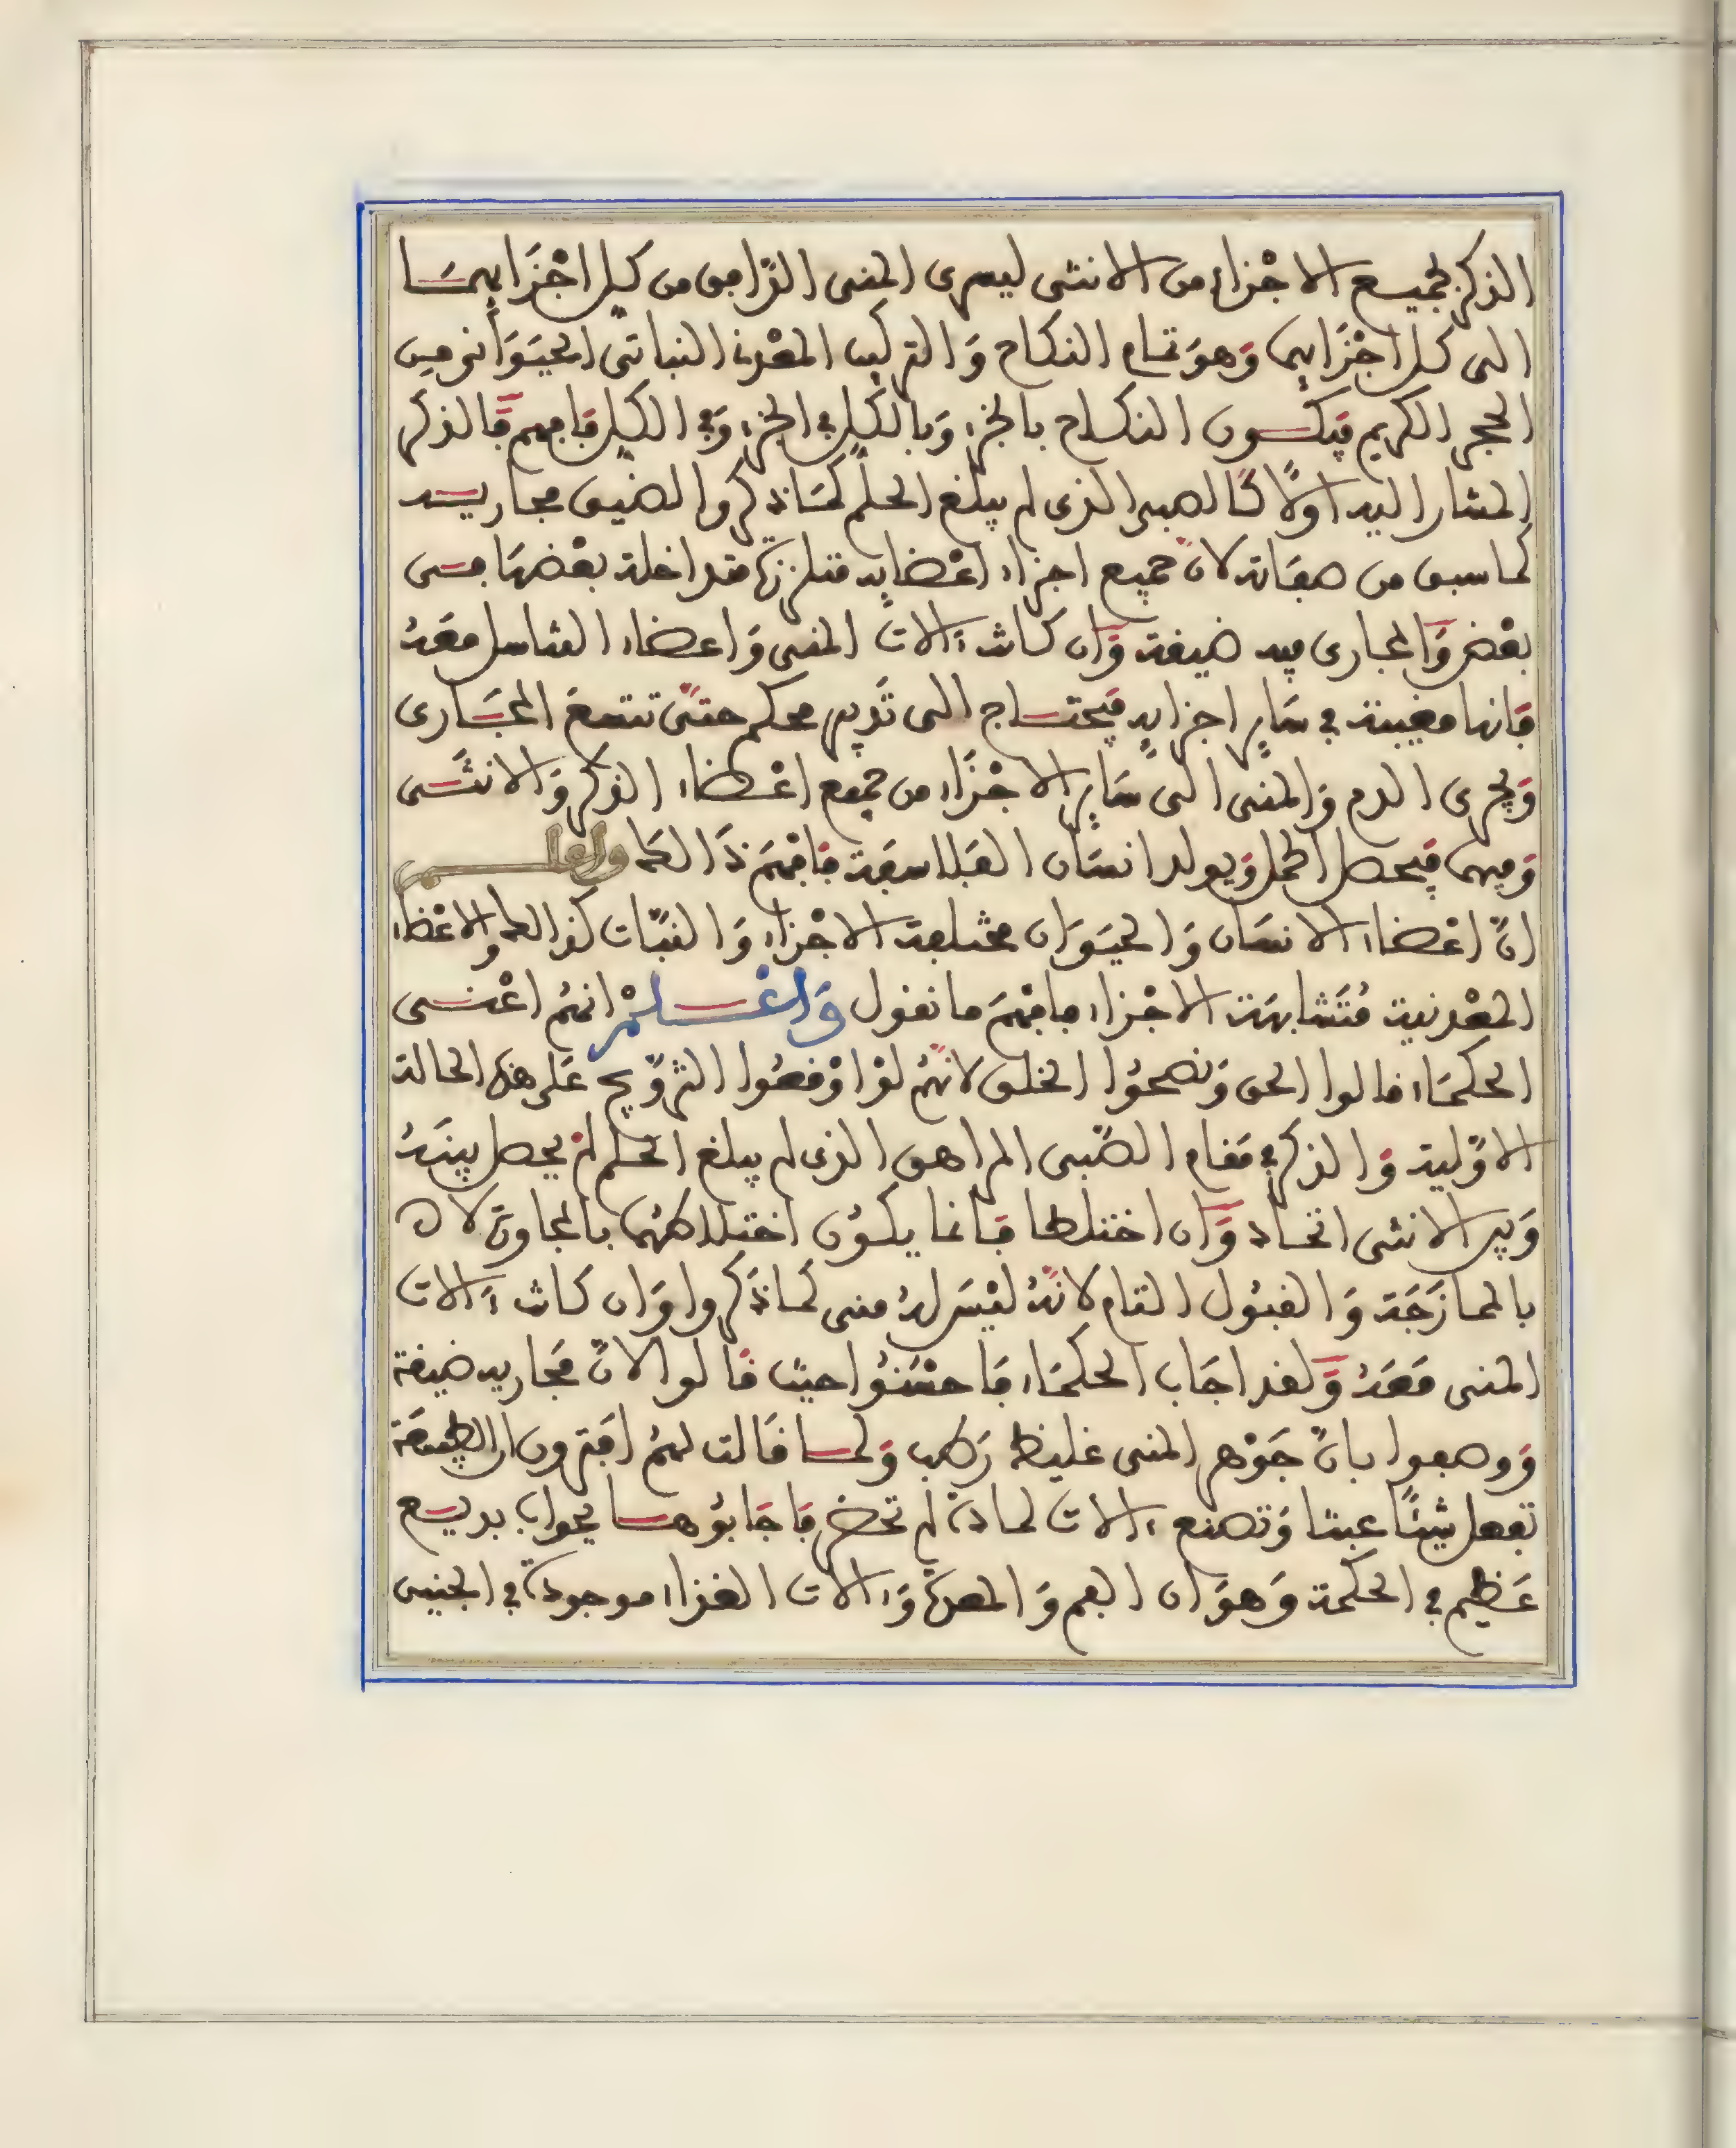 الذكر بجميع الاجْزاء من الانثى ليسرى المنى الدّافق من كل اجْزَايهمَا
الى كل اجْزَايهما وَهوَ تمام النكاح وَالتركيب المعْدنى النباتى الحيَوَانى من
الحجر الكريم فيكون النكاح بالجزء وَبالكل فى الجزء وَفى الكل فافهم فَالذكر
المشار اليه اولًا كَالصبى الذى لم يبلغ الحلم كمَا ذكروا لضيق مجاريه
كما سبق من صفاته لانّ جميع اجزاء اعْضايه متلززة متداخلة بعْضهَا فى
بعْض وَالمجارى فيه ضيقة وَان كانت ءالات المنى وَاعضاء التناسل معَهُ
فَانها مغيبة فى سَاير اجزايه فَيحتاج الى تَدبير محكم حتىّ تتسعَ المجَارى
وَيجرى الدم وَالمنى الى سَاير الاجْزَاء من جميع اعْضاء الذكر وَالانثَى
وَفيهما فيحصل الحمل وَيولد انسَان الفلاسفة فافهَمْ ذَالك واعلم
انّ اعْضاء الانسَان وَالحيَوَان مختلفة الاجْزاء وَالنبّات كذالك والاعْضاء
المعْدنية مُتَشابهة الاجْزاء فافهَمْ ما نقول وَاعْلمْ انهُم اعْنى
الحكمَاء قالوا الحق وَنصحُوا الخلق لانهُم لوْ اوْقعُوا التزوّيج عَلى هذه الحالة
الاوّلية وَالذكر فى مَقام الصّبى المراهق الذى لم يبلغ الحلم لمْ يحصل بينَهُ
وَبين الانثى اتحاد وَان اختلطا فَانما يكوُن اختلاطهُما بالمجاورة لا
بالممازَجَة وَالقبُول التام لانّهُ ليْسَ لهُ منى كمَا ذَكروا وَان كانت ءالات
المنى مَعَهُ وَلقد اجَاب الحكمَاء فَاحسَنُوا حيث قَالوا لانّ مَجاريه ضيقة
وَوصفوا بانّ جَوْهر المنى غليظ رَطب وَلما قَالت لهُم افترون ان الطبيعَة
تفعل شيئًا عبثا وَتصنع ءالات لمادة لم تحضر فَاجَابُوهَا بجواب بديع
عَظيم فى الحكمة وَهوَ ان الفم وَالمعدة وَءالات الغذاء موجودة فى الجنين